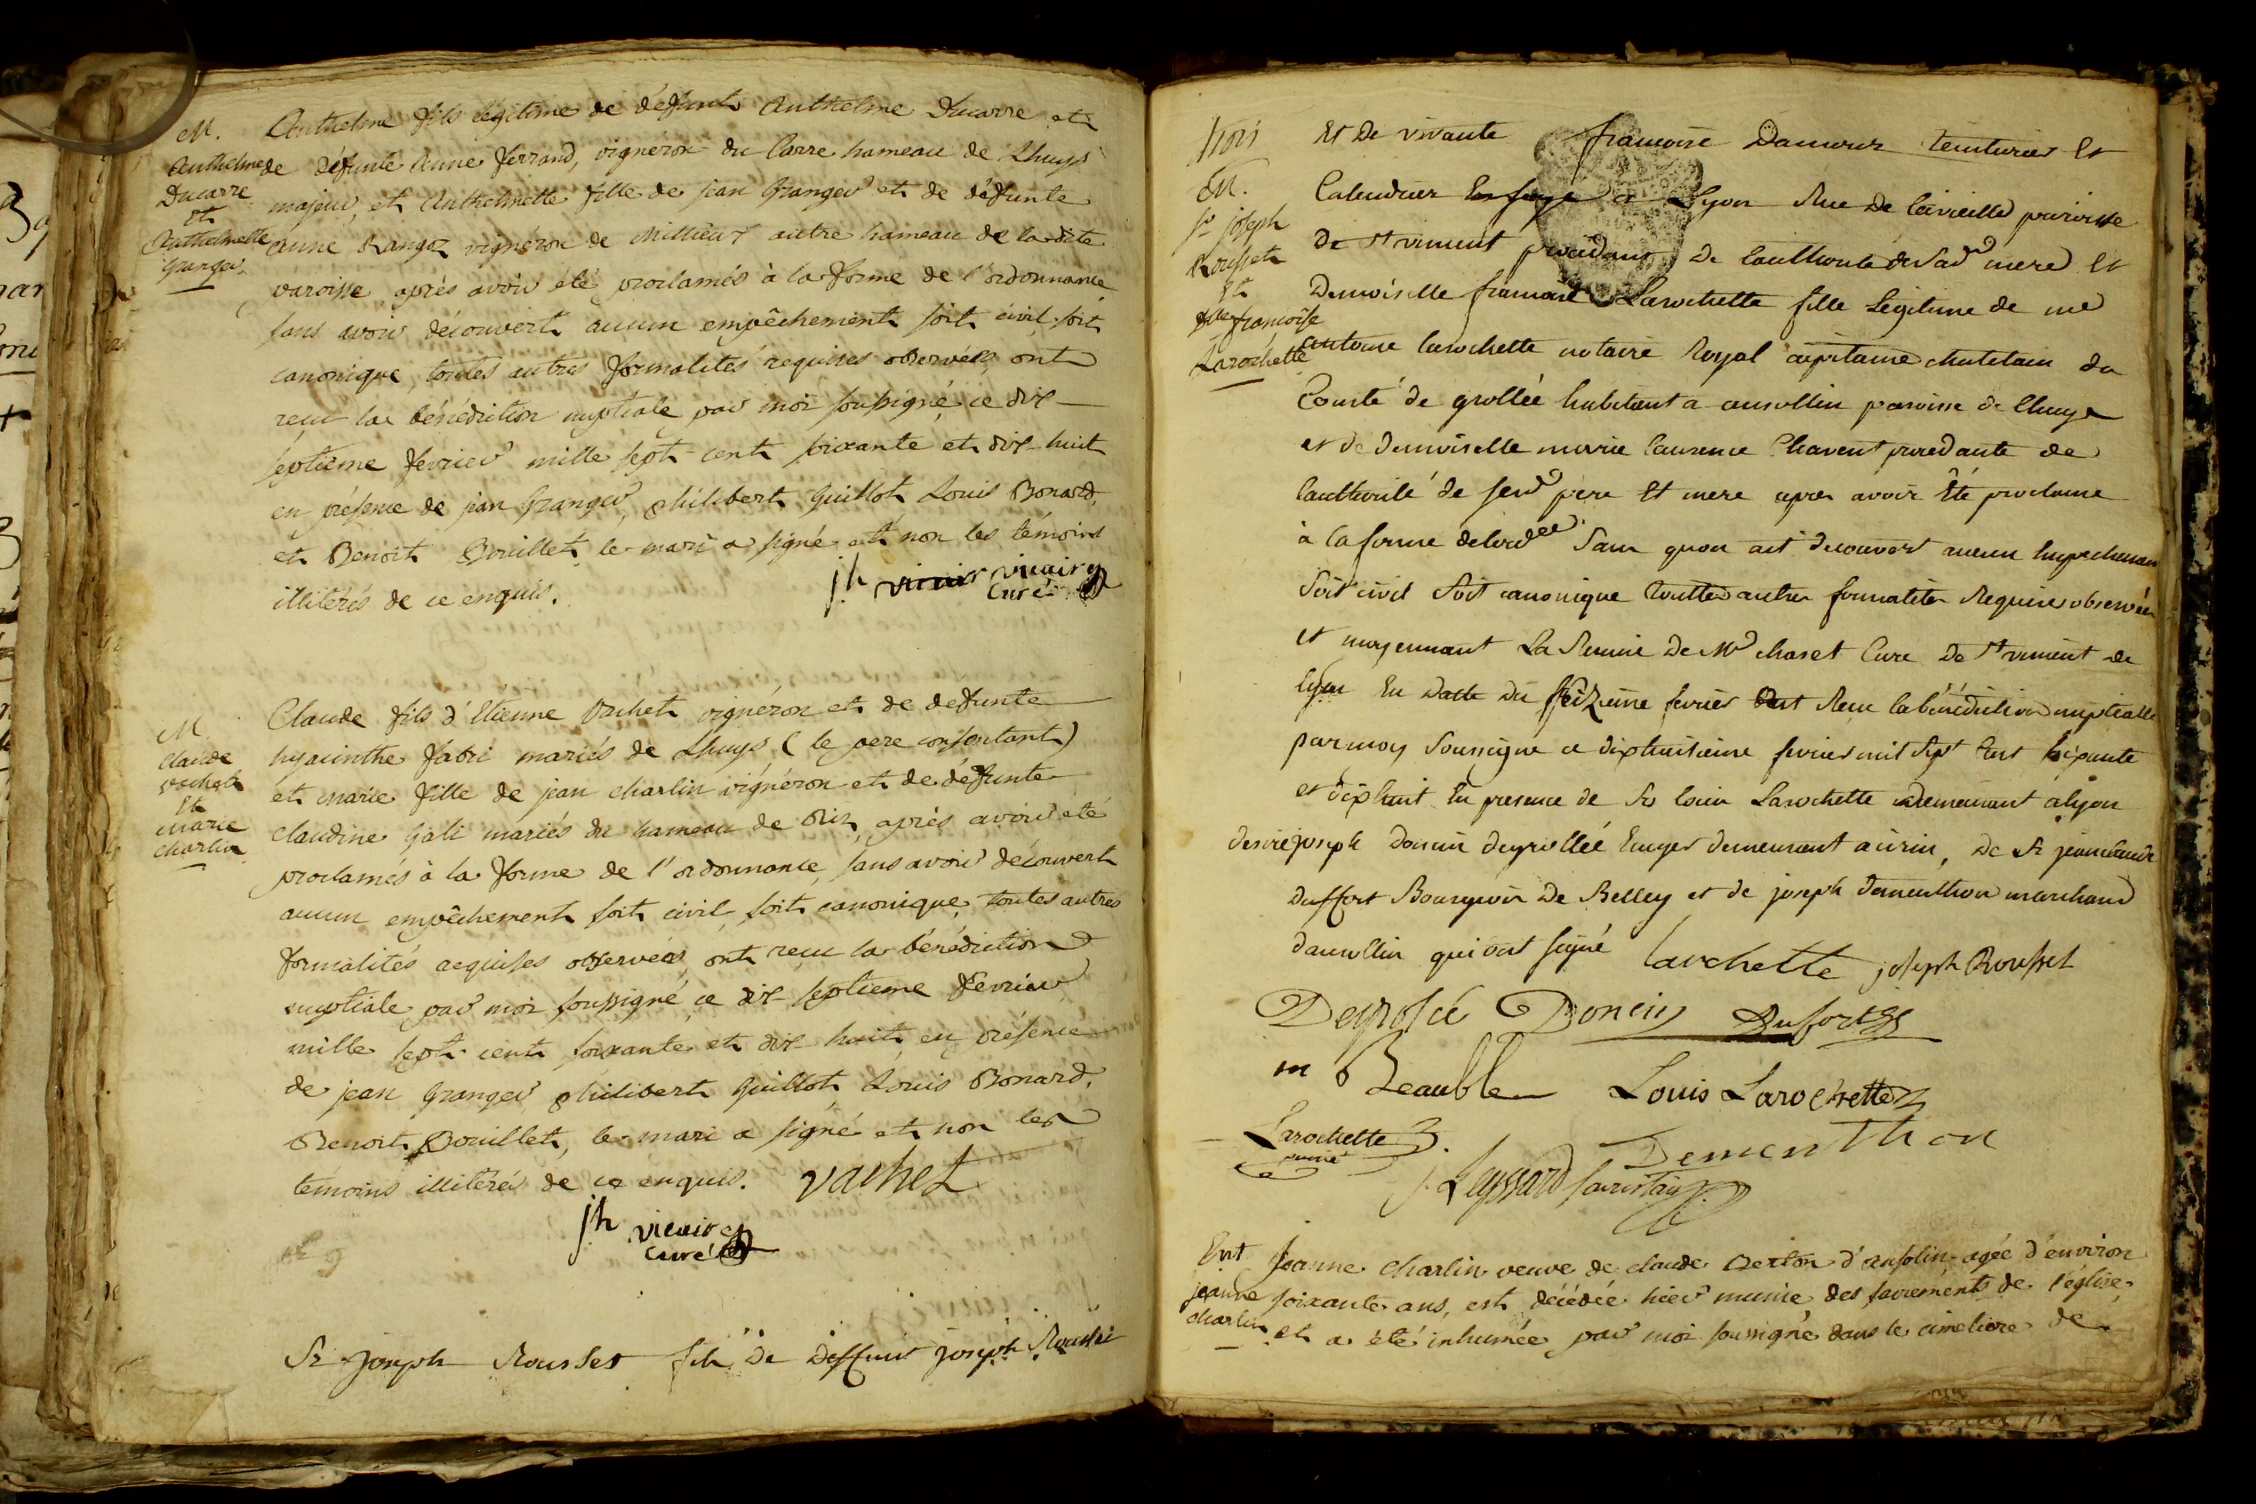 M.
Anthelme
Ducarre
et
Anthelmette
Granger
Anthelme fils légitime de défunt Anthelme Ducarre et
de défunte Anne Ferrand, vigneron du Carre hameau de Lhuys
majeur, et Anthelmette fille de jean Granger et de défunte
Anne Rangoz vigneron de Millieu autre hameau de la dite
paroisse, après avoir été proclamés à la forme de l'ordonnance
sans avoir découvert aucun empêchement soit civil soit
canonique, toutes autres formalités requises observées, ont
reçu la bénédiction nuptiale par moi soussigné, ce dix-
septième février mille sept cent soixante et dix-huit
en présence de jean Granger, philibert Guillot, Louis Bonard,
et Benoit Bouillet, le mari a signé et non les témoins
illitérés de ce enquis.
jh vicaire
Curé
M.
claude
vachet
et
marie
charlin
Claude fils d'Etienne Vachet vignéron et de defunte
hyacinthe fabri mariés de Lhuys (le pere consentant)
et marie fille de jean charlin vignéron et de défunte
claudine Gali mariés du hameau de Rix, après avoir été
proclamés à la forme de l'ordonnance, sans avoir découvert
aucun empêchement soit civil, soit canonique, toutes autres
formalités requises observées, ont reçu la bénédiction
nuptiale par moi soussigné, ce dix-septieme fevrier
mille sept cent soixante et dix huit, en présence
de jean Granger, philibert Guillot, Louis Bonard,
Benoit Bouillet, le mari a signé et non les
témoins illitérés de ce enquis. vachet
jh vicaire
Curé
Sr joseph Rousset fils De Deffunt joseph Rousset
trois
M.
Sr joseph
Rousset
et
Dlle françoise
Larochette
et De vivante françoise Damour teinturier et
Calendrier a Lyon Rue De paroisse
De st vincent procedant De lauthorité de sad mere et
Demoiselle francoise Larochette fille Légitime de me
antoine larochette notaire Royal capitaine chatelain du
Comté de grollée habitant a ansollin paroisse de lhuys
et de demoiselle marie laurence Chavent procedante de
lauthorité de ses pere et mere apres avoir été proclame
à la forme delordce Sans quon ait decouvert aucun Empechement
Soit civil Soit canonique toutte autres formalités Requises observées
et moyennant La Remise De Mr charet Curé De st vincent de
lyon En datte du seizieme fevrier ont Recu la bénédiction nuptialle
par moy Soussigné ce dixhuitieme fevrier mil sept cent soixante
et dixhuit En presence de Sr louis Larochette demeurant a lyon
desire joseph doncin deyrollée demeurant a , De Sr jean claude
Duffort Bourgeois De Belley et de joseph dementhon marchand
dansollin qui ont signé larchette joseph Rousset
Doncin Dufort
m Beauble Louis Larochette
Larochette
puiné
Dementhon
J. Leyssard sacristain
Ent
jeanne
charlin
Jeanne charlin veuve de claude Berlon d'ansolin agée d'environ
soixante ans, est décédée hier munie des sacréments de l'église,
et a été inhumée par moi soussigné dans le cimetiere de